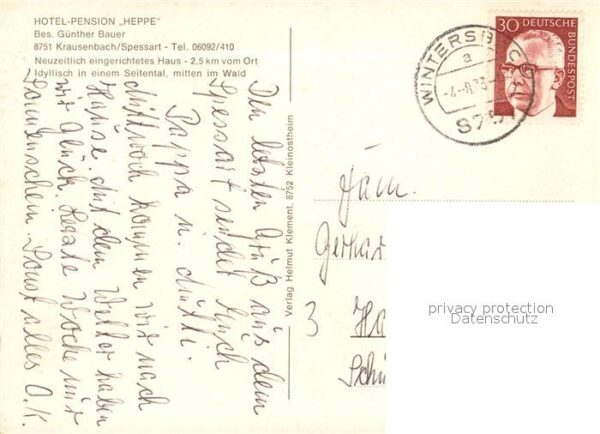 HOTEL-PENSION „HEPPE"
Bes. Günther Bauer
8751 Krausenbach/Spessart - Tel. 06092/410
Neuzeitlich eingerichtetes Haus - 2,5 km vom Ort
Idyllisch in einem Seitental, mitten im Wald
Den letzten Gruß aus dem
Spessart sendet Euch
Pappa u. Mutti.
Mittwoch kommen wir nach
Hause. Mit dem Wetter haben
wir Glück. Letzte Woche nur
Sonnenschein. Sonst alles O.K.
Verlag Helmut Klement, 8752 Kleinostheim
WINTERSB
a
-4.-8.73
875
30 DEUTSCHE
BUNDESPOST
Fam.
Gerhar
3 Ha
Schü
privacy protection
Datenschutz